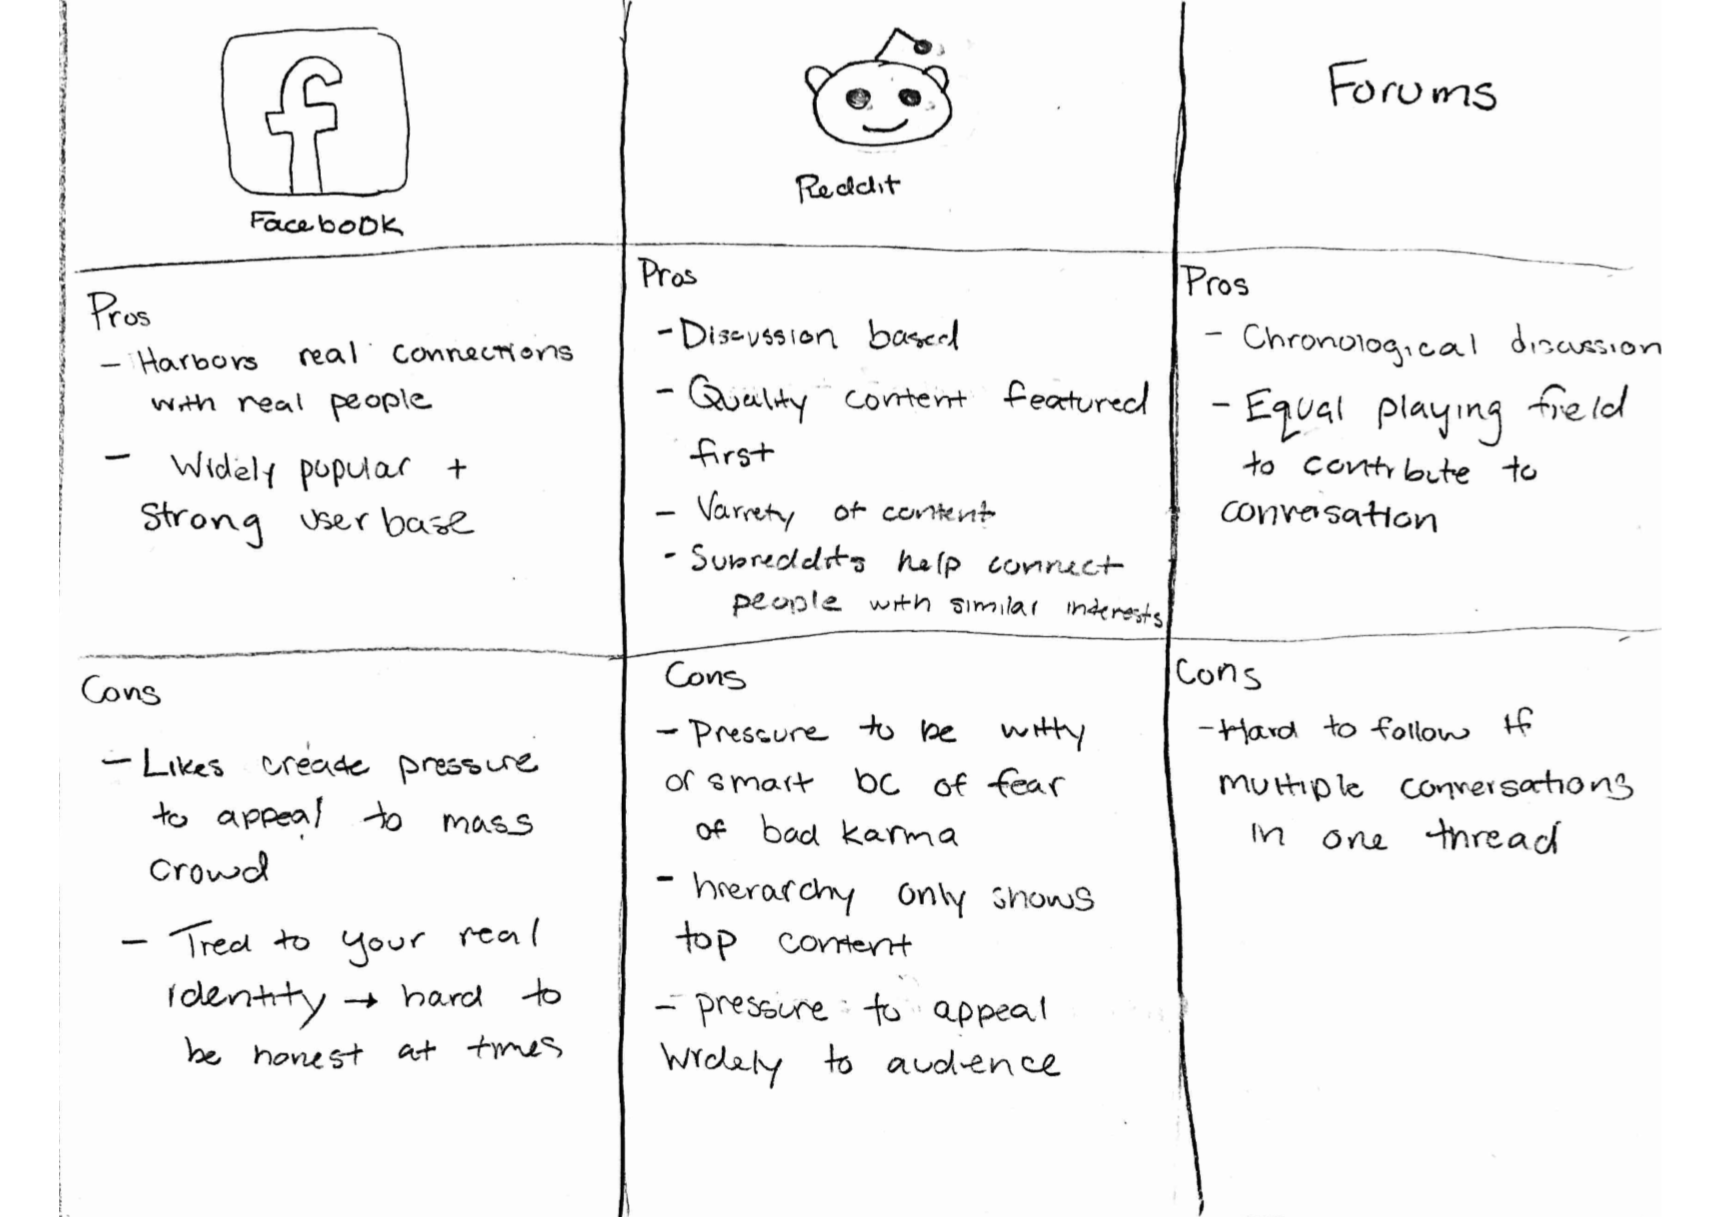 f
Facebook
Reddit
Forums
Pros
- Harbors real connections
with real people
- Widely popular +
strong userbase
Pros
- Discussion based
- Quality content featured
first
- Variety of content
- Subreddits help connect
people with similar interests
Pros
- Chronological discussion
- Equal playing field
to contribute to
conversation
Cons
- Likes create pressure
to appeal to mass
crowd
- Tied to your real
identity → hard to
be honest at times
Cons
- Pressure to be witty
or smart bc of fear
of bad karma
- hierarchy only shows
top content
- pressure to appeal
widely to audience
Cons
- Hard to follow if
multiple conversations
in one thread